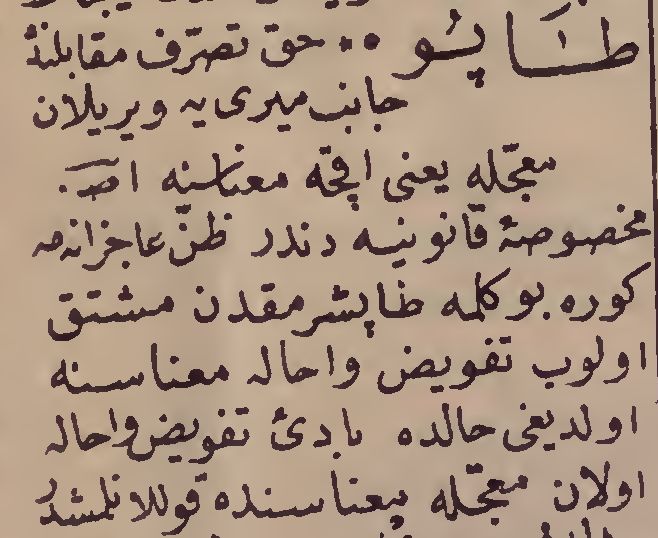 طاپو .. حق تصرّف مقابلنده
جانب ميرى يه ويريلان
معجّله يعنى اقچه معناسنه اصـ.
مخصوصهٔ قانونيه دندر ظنّ عاجزانه مه
كوره بو كلمه طاپشرمقدن مشتق
اولوب تفويض واحاله معناسنه
اولديغى حالده بادئ تفويض واحاله
اولان معجّله معناسنده قوللانلمشدر